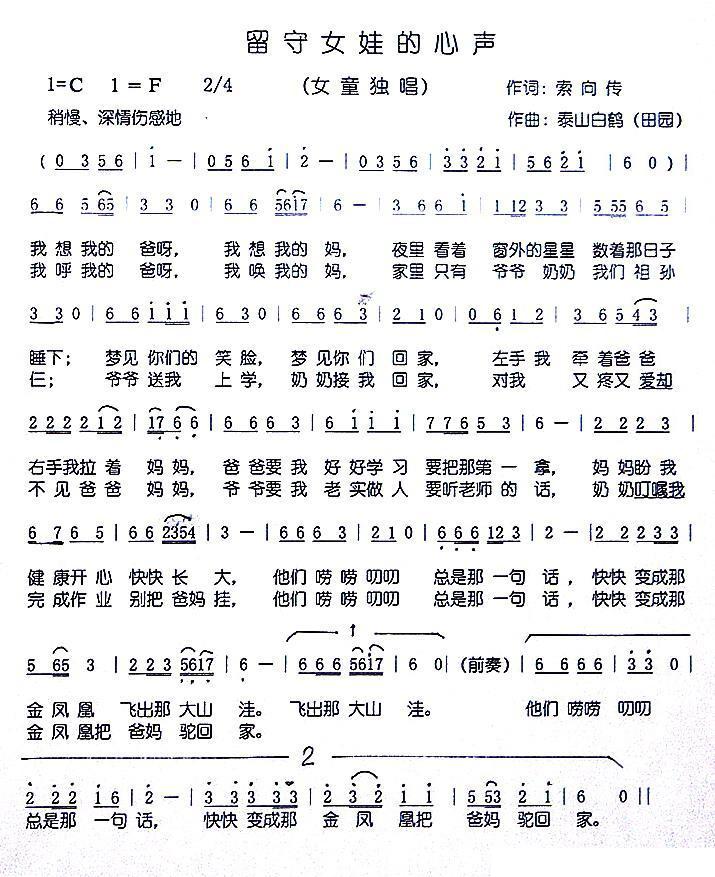 留守女娃的心声
1=C 1=F 2/4 (女童独唱) 作词：索向传
稍慢、深情伤感地 作曲：泰山白鹤（田园）
( 0 3 5 6 | 1 — | 0 5 6 1 | 2 — | 0 3 5 6 | 3 3 2 1 | 5 6 2 1 | 6 0 ) |
6 6 5 65 | 3 3 0 | 6 6 5617 | 6 — | 3 6 6 1 | 1 12 3 3 | 5 55 6 5 |
我想我的 爸呀， 我想我的 妈， 夜里看着 窗外的星星 数着那日子
我呼我的 爸呀， 我唤我的 妈， 家里只有 爷爷 奶奶 我们祖孙
3 3 0 | 6 6 1 1 1 | 6 6 0 | 6 6 6 3 | 2 1 0 | 0 6 1 2 | 3 6 5 43 |
睡下； 梦见你们的 笑脸， 梦见你们 回家， 左手我 牵着爸爸
仨； 爷爷送我 上学， 奶奶接我 回家， 对我 又疼又爱却
2 2 2 2 12 | 17 6 6 | 6 6 6 3 | 6 1 1 1 | 7 7 6 5 3 | 6 — | 2 2 2 3 |
右手我拉着 妈妈， 爸爸要我 好好学习 要把那第一拿， 妈妈盼我
不见爸爸 妈妈， 爷爷要我 老实做人 要听老师的话， 奶奶叮嘱我
6 7 6 5 | 6 6 2354 | 3 — | 6 6 6 3 | 2 1 0 | 6 6 6 12 3 | 2 — | 2 2 2 3 3 |
健康开心 快快长 大， 他们唠唠叨叨 总是那一句 话， 快快变成那
完成作业 别把爸妈挂， 他们唠唠叨叨 总是那一句 话， 快快变成那
5 65 3 | 2 2 3 5617 | 6 — | 6 6 6 5617 | 6 0 | (前奏) | 6 6 6 6 | 3 3 0 |
1
金凤凰 飞出那大山 洼。 飞出那大山 洼。 他们唠唠 叨叨
金凤凰把 爸妈驼回 家。
2
2 2 2 1 6 | 2 — | 3 3 3 3 3 | 2 3 2 1 1 | 5 53 2 1 | 6 0 ||
总是那 一句话， 快快变成那 金凤 凰把 爸妈驼回 家。